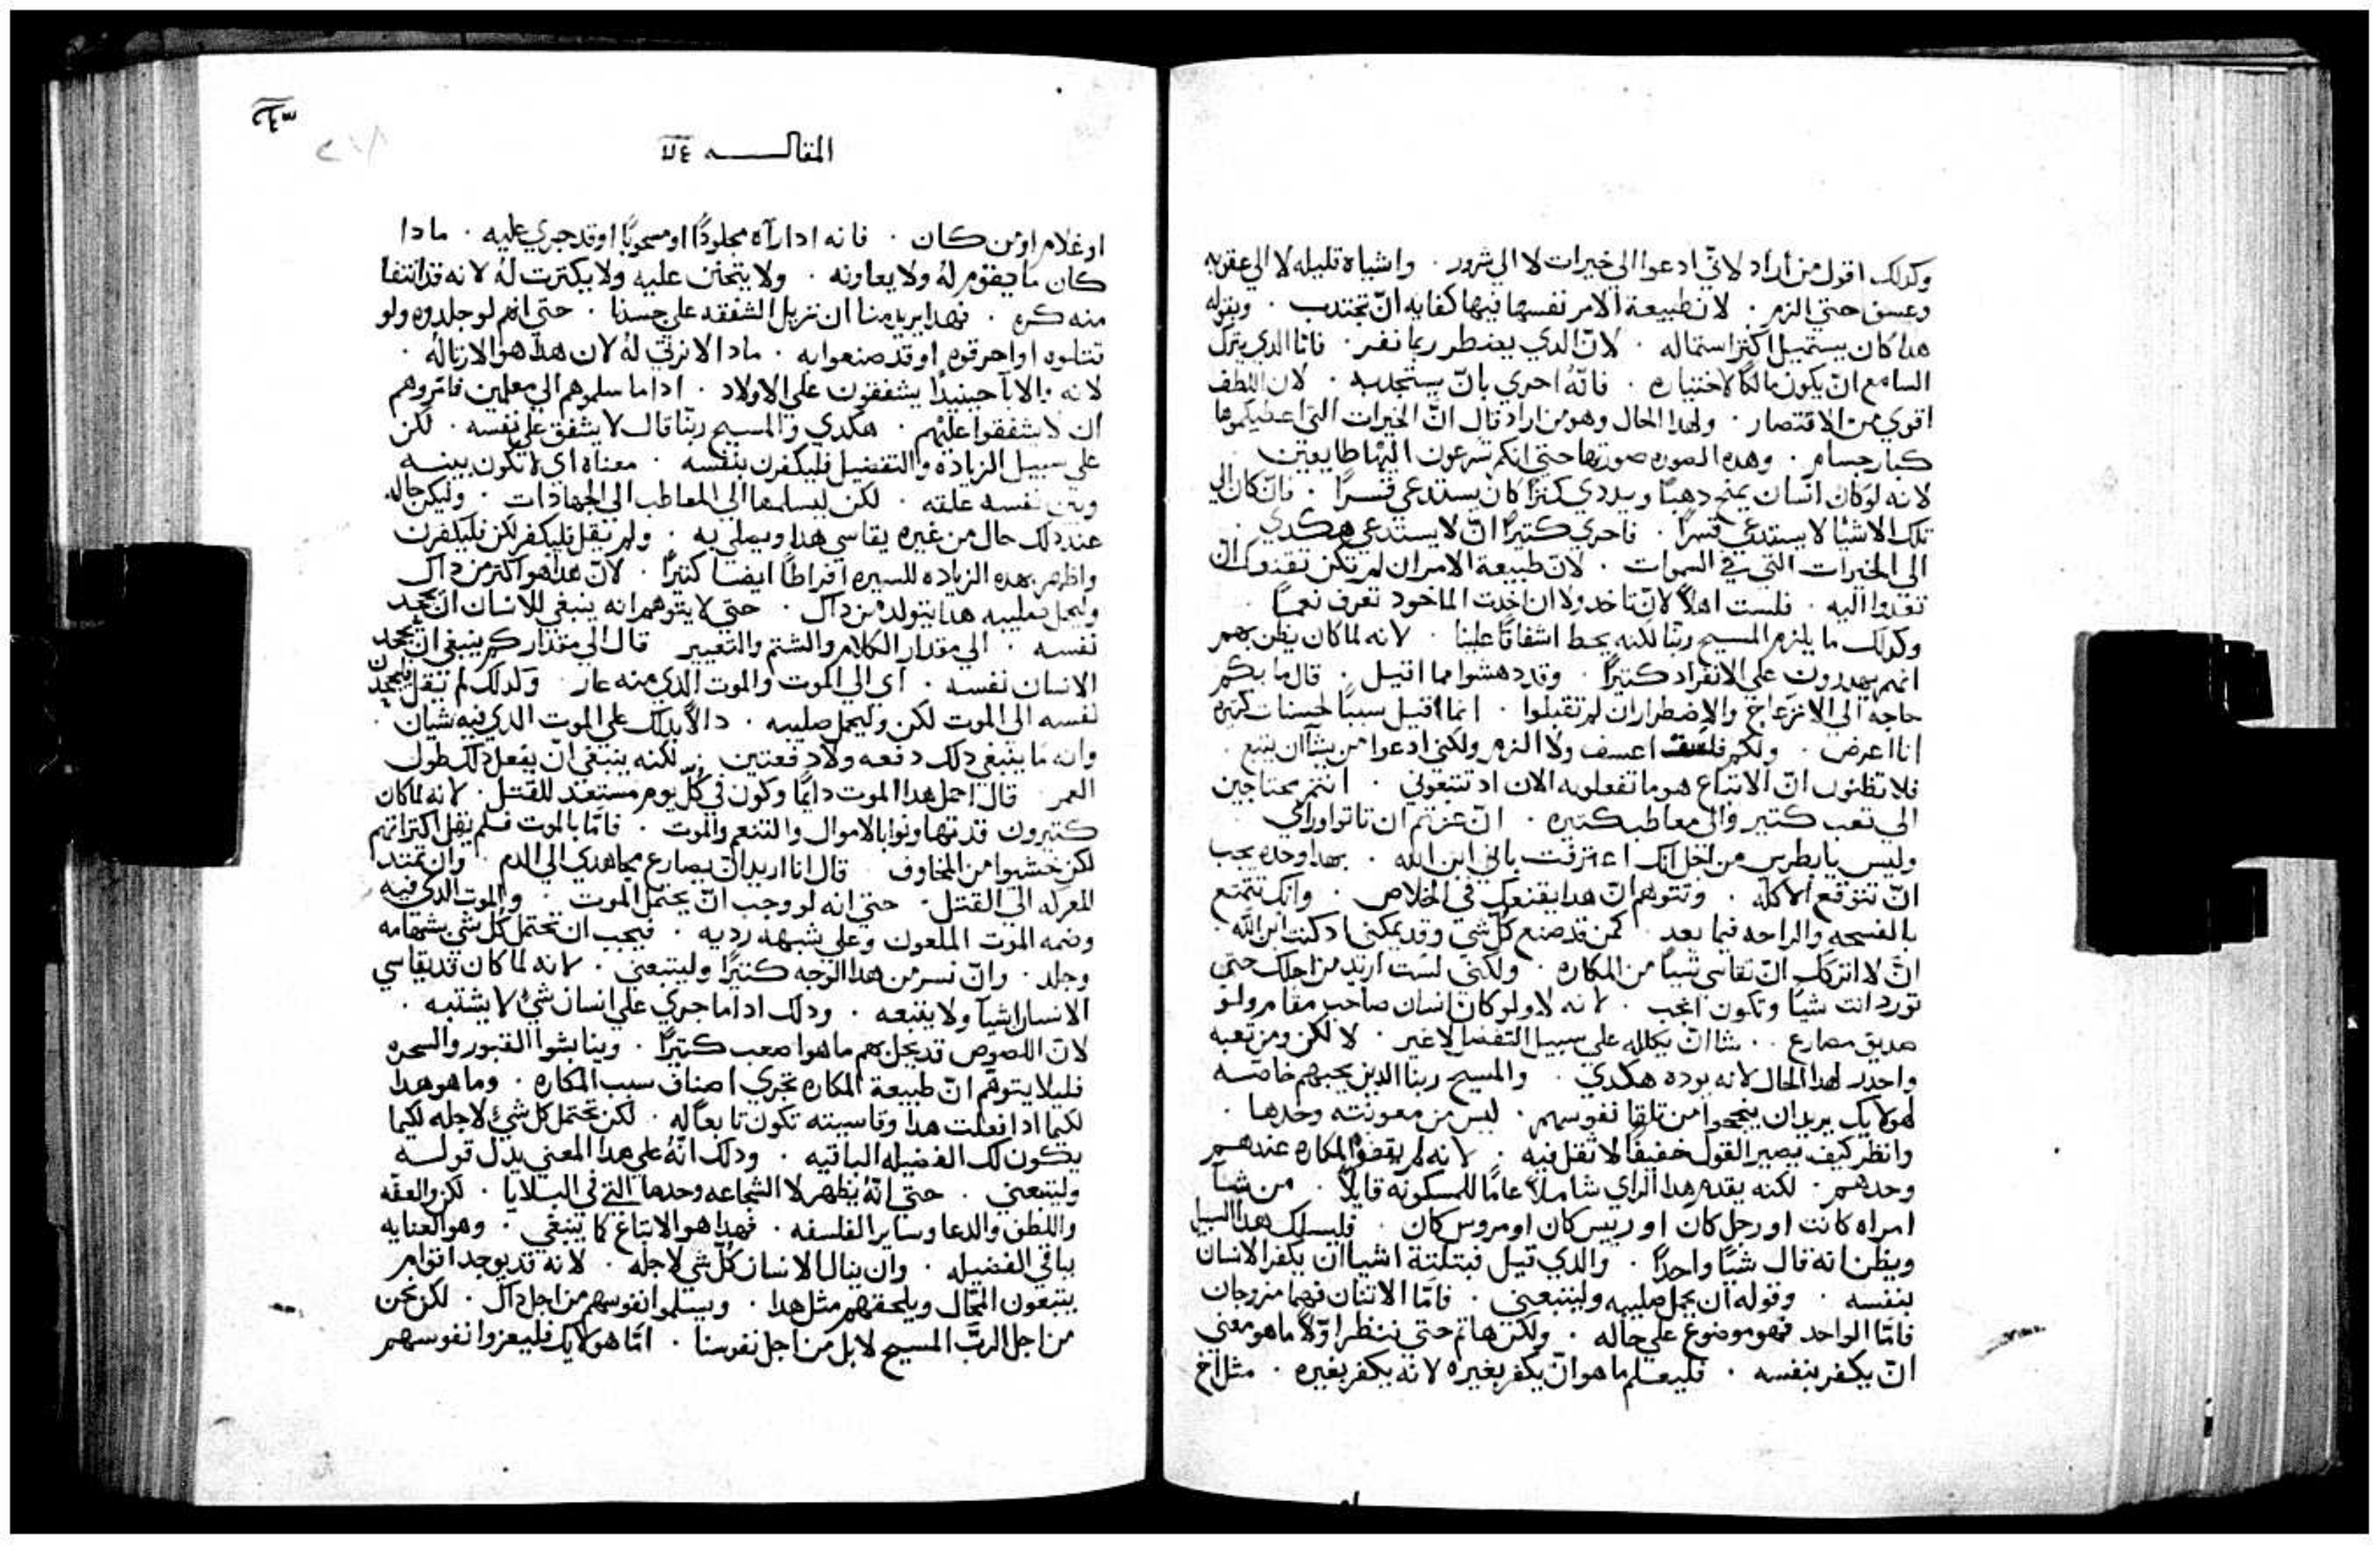 وكدلك اقول من اراد لاني ادعوا الي خيرات لا الي شرور ٠ واشياء قليله لا الي عقوبه
وعسق حتي الزم ٠ لان طبيعة الامر نفسها فيها كفايه ان تجتدب ٠ وبقوله
هدا كان يستميل اكتر استماله ٠ لان الدي يضطر ربما نفر ٠ فاما الدي يترك
السامع ان يكون مالكا لاختياره ٠ فانه احري بان يستجدبه ٠ لان اللطف
اقوي من الاقتصار ٠ ولهدا الحال وهو من اراد قال ان الخيرات التي اعطيكموها
كبار جسام ٠ وهده الصوره صورتها حتي انكم تسرعون اليها طايعين
لانه لو كان انسان يمنح دهبا ويددي كنزا كان يستدعي قسرا ٠ فان كان الي
تلك الاشيا لا يستدعي قسرا ٠ فاحري كتيرا ان لا يستدعي هكدي ٠
الي الخيرات التي في السموات ٠ لان طبيعة الامر ان لم تكن تقنعك ان
تغدوا اليه ٠ فلست اهلا لان تاخد ولا ان اخدت الماخود تعرف نعما ٠
وكدلك ما يلزم المسيح ربنا لكنه يحط اشفاقا علينا ٠ لانه لما كان يظن بهم
انهم يهددون علي الانفراد كتيرا ٠ وقد دهشوا مما اقيل ٠ قال ما بكم
حاجه الي الانزعاج والاضطرار ان لم تقبلوا ٠ انما اقيل سببا لحسنات كتيره
انا اعرض ٠ ولكم فلست اعسف ولا الزم ولكني ادعوا من يشا ان يتبع ٠
فلا تظنون ان الاتباع هو ما تفعلوه الان اد تتبعوني ٠ انتم محتاجين
الي تعب كتير والي معاطب كتيره ٠ ان عزمتم ان تاتوا وراي
وليس يا بطرس من اجل انك اعترفت باني ابن الله ٠ بهدا وحده يجب
ان تتوقع الاكله ٠ وتتوهم ان هدا يقنعك في الخلاص ٠ وانك تتمتع
بالفسحه والراحه فيما بعد ٠ كمن قد صنع كل شي وقد يمكني ادكنت ابن الله ٠
ان لا اتركك ان تقاسي شيا من المكاره ٠ ولكني لست اريد من اجلك حتي
تورد انت شيا وتكون اعجب ٠ لانه لا ولو كان انسان صاحب مقام ولو
صديق مصارع ٠٠ شا ان يكلله علي سبيل التفضل لا غير ٠ لا لكن ومن تعبه
واحدر لهدا الحال لانه بوده هكدي ٠ والمسيح ربنا الدين يحبهم خاصه
هولايك يريد ان ينجحوا من تلقا نفوسهم ٠ ليس من معونته وحدها ٠
وانظر كيف يصير القول خفيفا لا ثقل فيه ٠ لانه لم يقض المكاره عندهم
وحدهم ٠ لكنه يقدم هدا الراي شاملا عاما للمسكونه قايلا ٠ من شا
امراه كانت او رجل كان او رييس كان او مروس كان ٠ فليسلك هدا السبيل
ويظن انه قال شيا واحدا ٠ والدي قيل فبتلتة اشيا ان يكفر الانسان
بنفسه ٠ وقوله ان يحمل صليبه وليتبعني ٠ فاما الاتنان فهما مزوجان
فاما الواحد فهو موضوع علي حاله ٠ ولكن هاتم حتي ننظر اولا ما هو معني
ان يكفر بنفسه ٠ فليعلم ما هو ان يكفر بغيره لانه يكفر بغيره ٠ مثل اخ
المقالـــــه
او غلام او من كان ٠ فانه ادا رآه مجلودا او مسحوبا او قد جري عليه ٠ مادا
كان ما يقوم له ولا يعاونه ٠ ولا يتحنن عليه ولا يكترت له لانه قد انتفا
منه كره ٠ فهدا يريد منا ان نزيل الشفقه علي جسدنا ٠ حتي انهم لو جلدوه ولو
قتلوه او احرقوه او قد صنعوا به ٠ مادا لا نرتي له لان هدا هو الارتا له ٠
لانه والابآ حينيدا يشفقون علي الاولاد ٠ ادا ما سلموهم الي معلمين فامروهم
ان لا يشفقوا عليهم ٠ هكدي والمسيح ربنا قال لا يشفق علي نفسه ٠ لكن
علي سبيل الزياده والتفضيل فليكفرن بنفسه ٠ معناه اي لا تكون بينه
وبين نفسه علقه ٠ لكن ليسلمها الي المعاطب الي الجهادات ٠ وليكن حاله
عند دلك حال من غيره يقاسي هدا ويصلي به ٠ ولم يقل فليكفر لكن فليكفرن
واظهر بهده الزياده لليسيره افراطا ايضا كتيرا ٠ لان هدا هو اكتر من داك
وليحمل صليبه هدا يتولد من داك ٠ حتي لا يتوهم انه ينبغي للانسان ان يجحد
نفسه ٠ الي مقدار الكلام والشتم والتعيير قال الي مقدار كم ينبغي ان يجحد
الانسان نفسه ٠ اي الي الموت والموت الدي منه عار ٠ ولدلك لم يقل فليجحد
نفسه الي الموت لكن وليحمل صليبه ٠ دالا بدلك علي الموت الدي فيه شيان ٠
وانه ما ينبغي دلك دفعه ولا دفعتين ٠ لكنه ينبغي ان يفعل دلك طول
العمر ٠ قال احمل هدا الموت دايما وكون في كل يوم مستعد للقتل ٠ لانه لما كان
كتيرون قد تهاونوا بالاموال والتنعم والموت ٠ فاما بالموت فلم يقل اكتراتهم
لكن خشيوا من المخاوف ٠ قال انا اريد ان يصارع مجاهدي الي الدم ٠ وان تمتد
المعركه الي القتل ٠ حتي انه لو وجب ان يحتمل الموت ٠ والموت الدي فيه
وصمه الموت الملعون وعلي شبهه رديه ٠ فيجب ان تحتمل كل شي بشهامه
وجلد ٠ وان نسر من هدا الوجه كتيرا وليتبعني ٠ لانه لما كان قد يقاسي
الانسان اشيآ ولا يتبعه ٠ ودلك ادا ما جري علي انسان شي لا يشتبه ٠
لان اللصوص قد يحل بهم ما هو اصعب كتيرا ٠ وينابشوا القبور والسحره
فليلا يتوهم ان طبيعة المكاره تجزي اصناف سبب المكاره ٠ وما هو هدا
لكيما ادا فعلت هدا وقاسيته تكون تابعا له ٠ لكن تحتمل كل شي لاجله لكيما
يكون لك الفضيله الباقيه ٠ ودلك انه علي هدا المعني يدل قولـه
وليتبعني ٠ حتي انه يظهر لا الشجاعه وحدها التي في البلايا ٠ لكن والعفه
واللطف والدعا وساير الفلسفه ٠ فهدا هو الاتباع كما ينبغي ٠ وهو العنايه
بباقي الفضيله ٠ وان ينال الانسان كل شي لاجله ٠ لانه قد يوجد اقوام
يتبعون المحال ويلحقهم مثل هدا ٠ ويسلموا نفوسهم من اجل داك ٠ لكن نحن
من اجل الرب المسيح لا بل من اجل نفوسنا ٠ اما هولايك فليعزوا نفوسهم